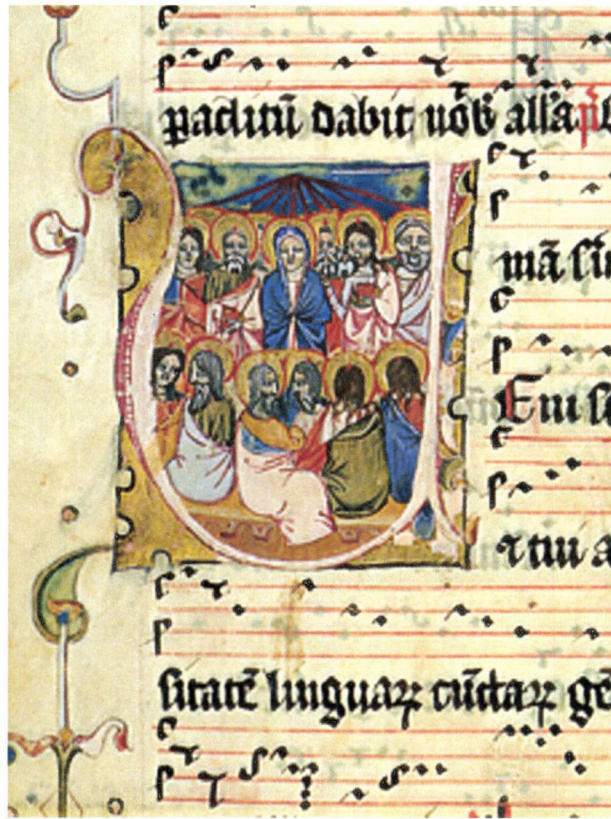 paclitū dabit uob̄ alla p̄
mā sī
Eni s
⁊ tui a
sitatē linguaꝝ cūctaꝝ gē